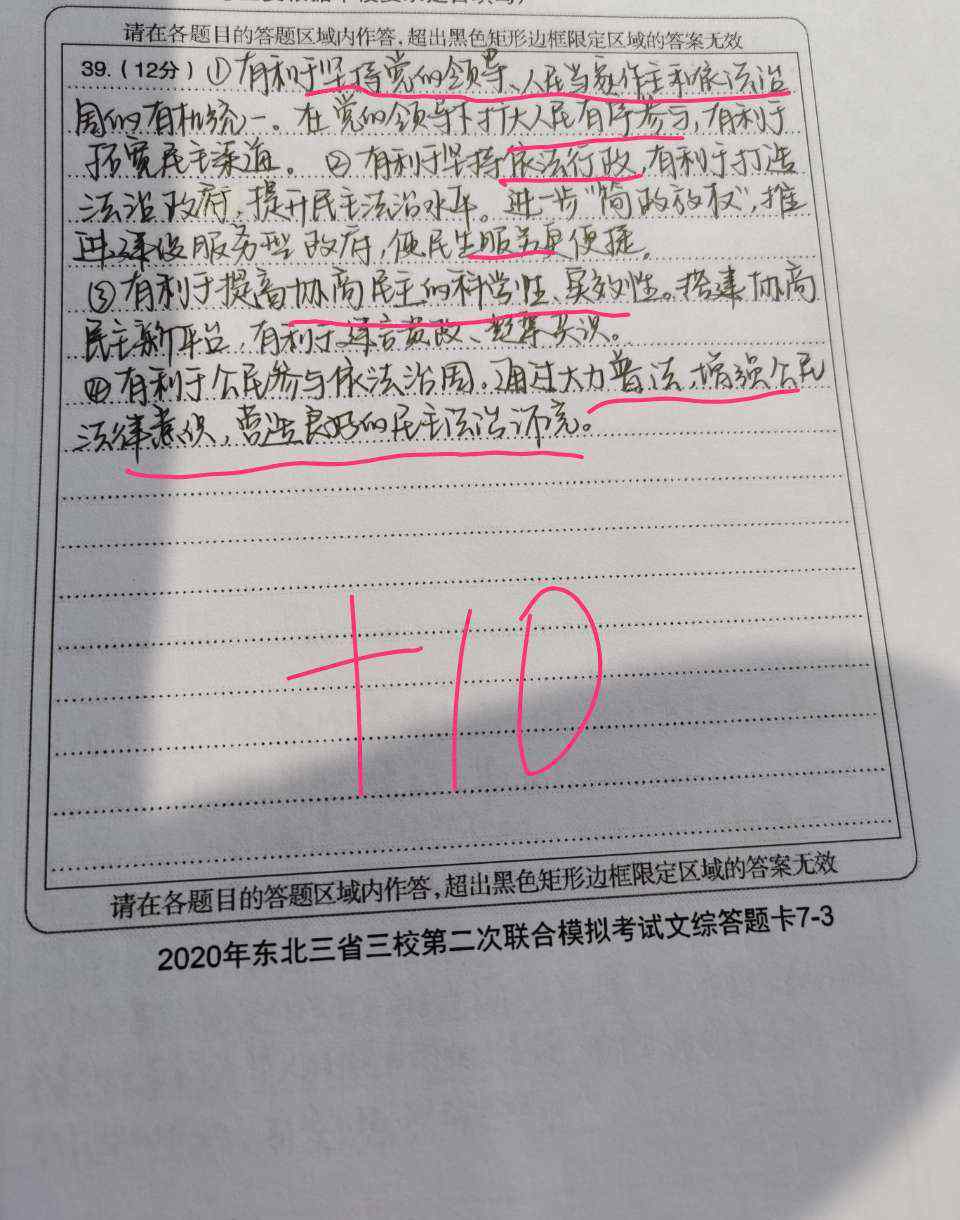 请在各题目的答题区域内作答,超出黑色矩形边框限定区域的答案无效
39.(12分)①有利于坚持党的领导、人民当家作主和依法治
国的有机统一。在党的领导下扩大人民有序参与,有利于
拓宽民主渠道。②有利于坚持依法行政,有利于打造
法治政府,提升民主法治水平。进一步"简政放权",推
进建设服务型政府,使民生服务更便捷。
③有利于提高协商民主的科学性、实效性。搭建协商
民主新平台,有利于建言资政、凝聚共识。
④有利于公民参与依法治国。通过大力普法,增强公民
法律意识,营造良好的民主法治环境。
+10
请在各题目的答题区域内作答,超出黑色矩形边框限定区域的答案无效
2020年东北三省三校第二次联合模拟考试文综答题卡7-3